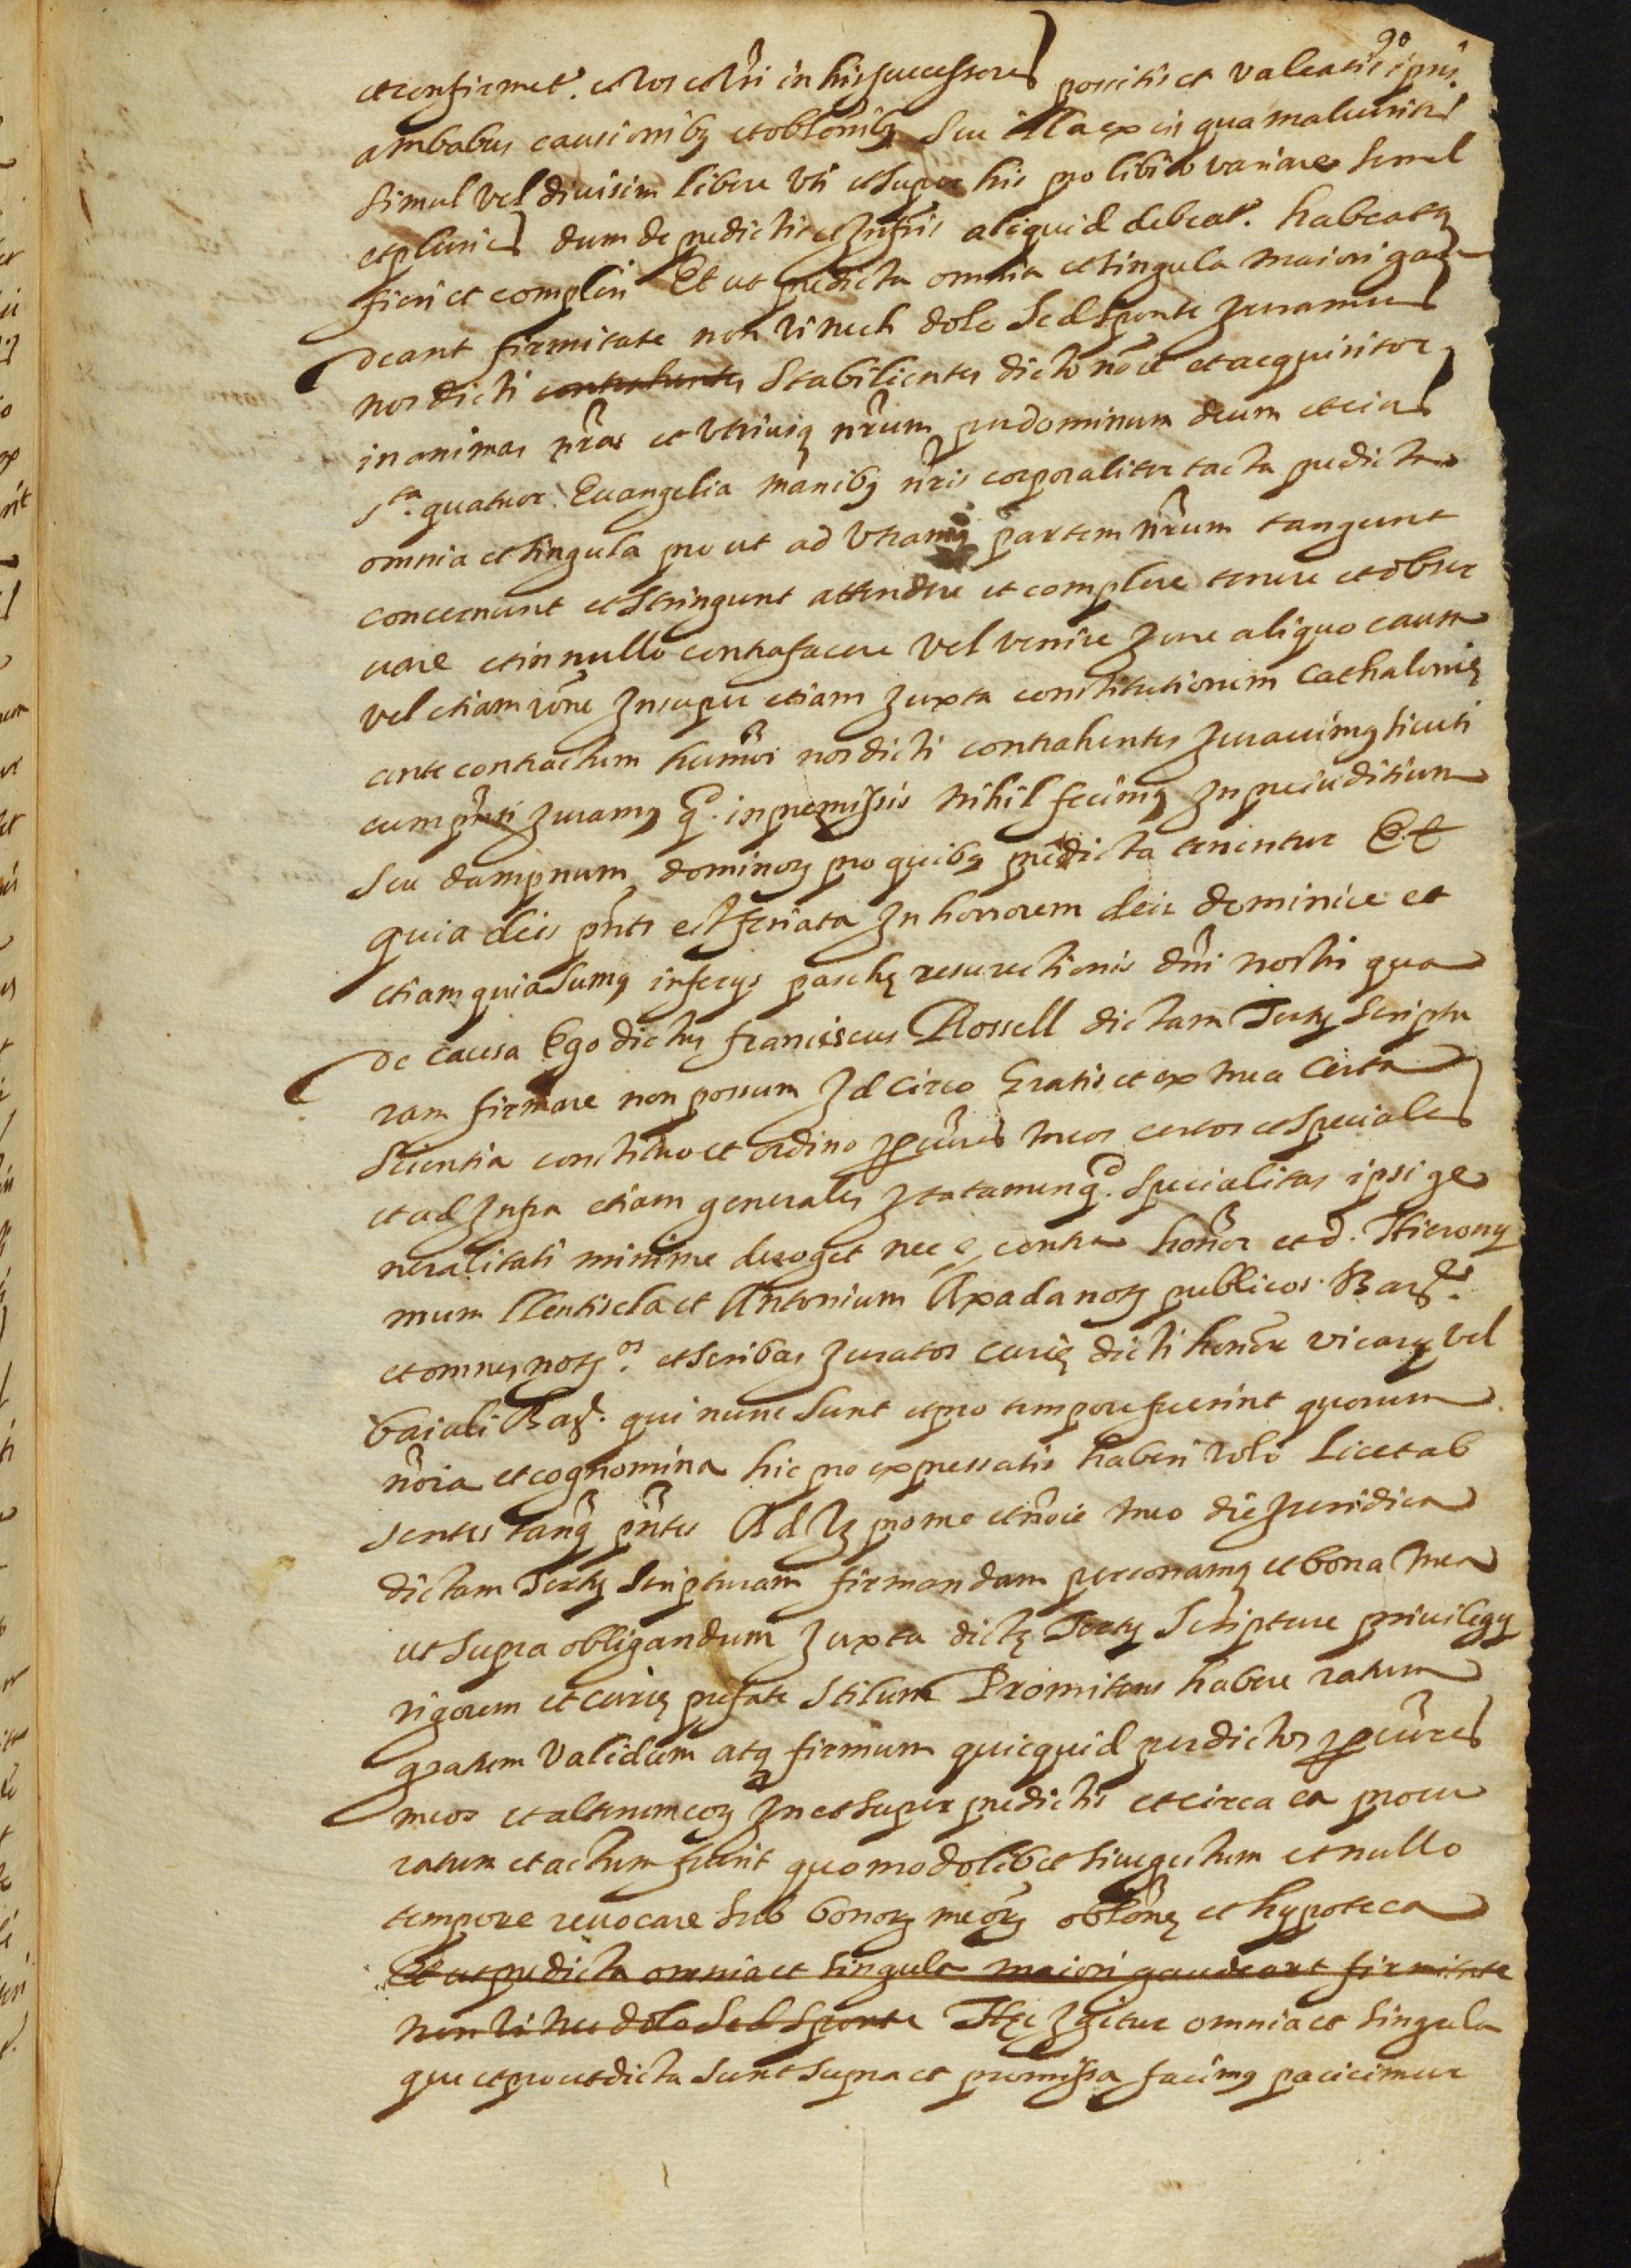 90
et confirmet. et vos et vr̃i in his successores possitis et valeatis ipsis
ambabus causionibꝫ et oblõnibꝫ seu illa ex eis qua malueritis
simul vel diuisim libere vti et super his pro libito variare semel
et pluries dum de predictis et Infr̃is aliquid debeat. habeatqꝫ
fieri et compleri Et ut predicta omnia et singula maiori gau
deant firmitate non vi nech dolo sed sponte Juramus
nos dicti contrahentes stabilientes dicto nõie et acquiritor
in animas nr̃as et vtriusqꝫ nr̃um per dominum deum et eius
s.ta quatuor Euangelia manibꝫ nr̃is corporaliter tacta predicta
omnia et singula prout ad vtramqꝫ partem nr̃um tangunt
concernunt et stringunt attendere et complere tenere et obser
uare et in nullo contrafacere vel venire Jure aliquo causa
vel etiam rõne Insuper etiam Juxta constitutionem Cathalonię
ante contractum huiusm̃oi nos dicti contrahentes Jurauimꝫ sicuti
cum pñti Juramꝫ q̃d. in premissis nihil fecimꝫ In preiuditium
seu dampnum dominorꝫ pro quibꝫ predicta tenentur Et
quia dies pñts est feriata In honorem diei dominice et
etiam quia sumꝫ in ferijs paschę resurectionis dñi nostri qua
de causa Ego dictus franciscus Rossell dictam Tertij scriptu
ram firmare non possum Idcirco Gratis et ex mea certa
scientia constituo et ordino ꝓcũres meos certos et speciales
et ad Infra etiam generales Ita tamen q̃d. specialitas ipsi ge
neralitati minime deroget nec e contra honõr et d. Hierony
mum Llentiscla et Antonium Axada notꝫ publicos Bar.ᵉ
et omnes notꝫ.os et scribas Juratos curię dicti honõr vicarij vel
baiuli Bar. qui nunc sunt et pro tempore fuerint quorum
nõia et cognomina hic pro expressatis haberi volo Licet ab
sentes tanqꝫ pñtes Ad Iꝫ pro me et nõie meo die Juridica
dictam Tertij scripturam firmandam personamqꝫ et bona mea
ut supra obligandum Juxta dictę Tertij Scripture priuilegij
rigorem et curię prefate stilum Promitens habere ratum
gratum validum atqꝫ firmum quicquid per dictos ꝓcũres
meos et alterum eorꝫ In et super predictis et circa ea procu
ratum et actum fuerit quomodolibet siue gestum et nullo
tempore reuocare sub bonorꝫ meorꝫ oblõne et hypoteca
Et ut predicta omnia et singula maiori gaudeant firmitate
non vi nec dolo sed sponte Hęc Igitur omnia et singula
que et prout dicta sunt supra et promissa facimꝫ paciscimur